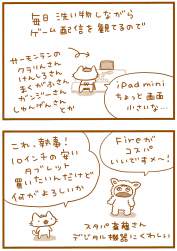 毎日洗い物しながら
ゲーム配信を観てるので
サーモンランの
クラリんさん
けんしろさん
まくがふさん
ガンジーさん
しゅんげんさん
とか
iPad mini
ちょっと画面
小さいな…
これ、執事！
10インチの安い
タブレット
買いたいんだけど
何がよろしいか
Fireが
コスパ
いいですメ〜！
スタパ齋藤さん
デジタル機器にくわしい